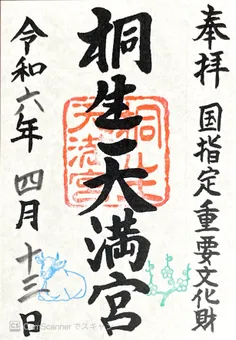 奉拝 国指定重要文化財
桐生天満宮
桐生
天満宮
令和六年 四月 十三日
CamScanner でスキャン